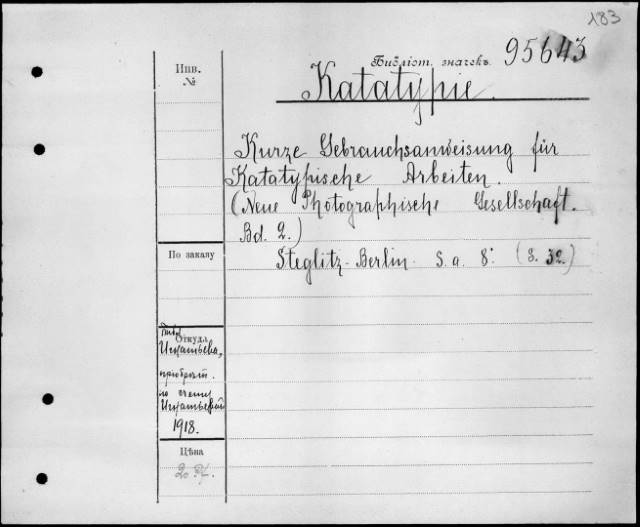 183
Библіот. значекъ 95643
Инв.
№
Katatypie.
Kurze Gebrauchsanweisung für
Katatypische Arbeiten.
(Neue Photographische Gesellschaft.
Bd. 2.)
По заказу
Steglitz-Berlin. S. a. 8°. (S. 32.)
Откуда
Игнатьева,
приобрет.
по счету
1918.
Цѣна